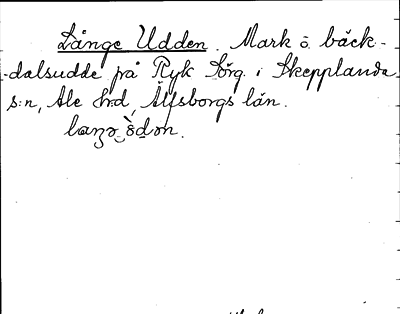 Långe Udden. Mark o. bäck-
dalsudde på Ryk Sörg. i Skepplanda
s:n, Ale hd, Älfsborgs län.